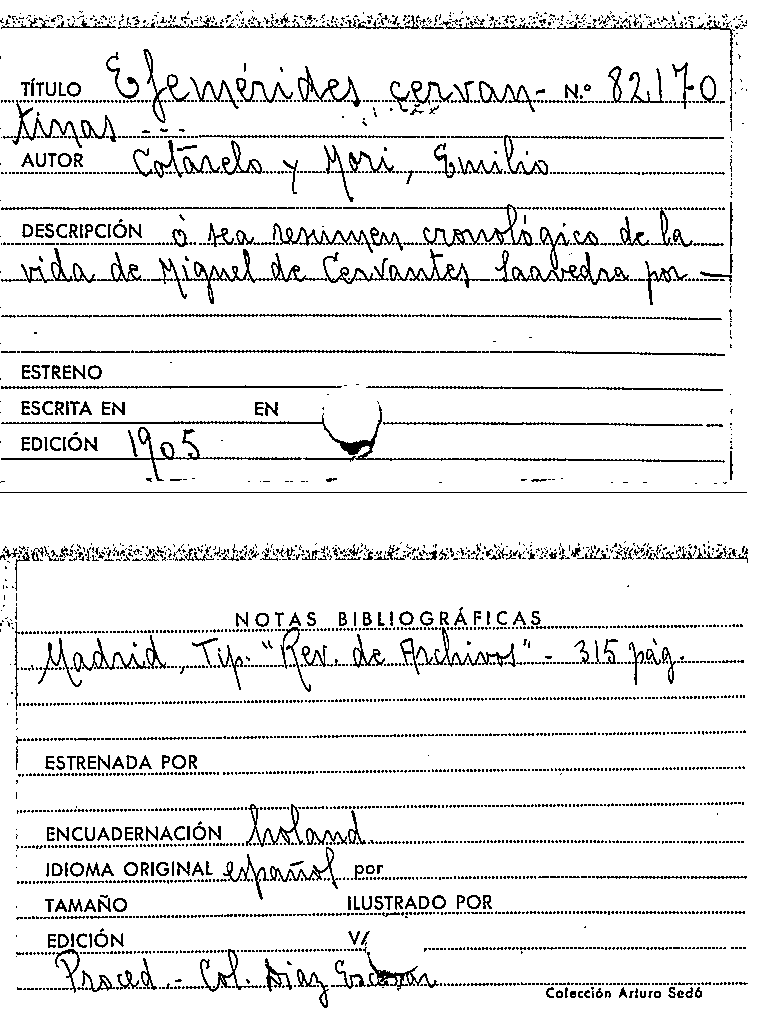 TÍTULO Efemérides cervan- N.º 82170
tinas ---
AUTOR Cotarelo y Mori, Emilio
DESCRIPCIÓN ó sea resumen cronológico de la
vida de Miguel de Cervantes Saavedra por —
ESTRENO
ESCRITA EN EN
EDICIÓN 1905
NOTAS BIBLIOGRÁFICAS
Madrid, Tip. "Rev. de Archivos" - 315 pág.
ESTRENADA POR
ENCUADERNACIÓN holand.
IDIOMA ORIGINAL español por
TAMAÑO ILUSTRADO POR
EDICIÓN V/
Proced. - Col. Díaz Escovar
Colección Arturo Sedó